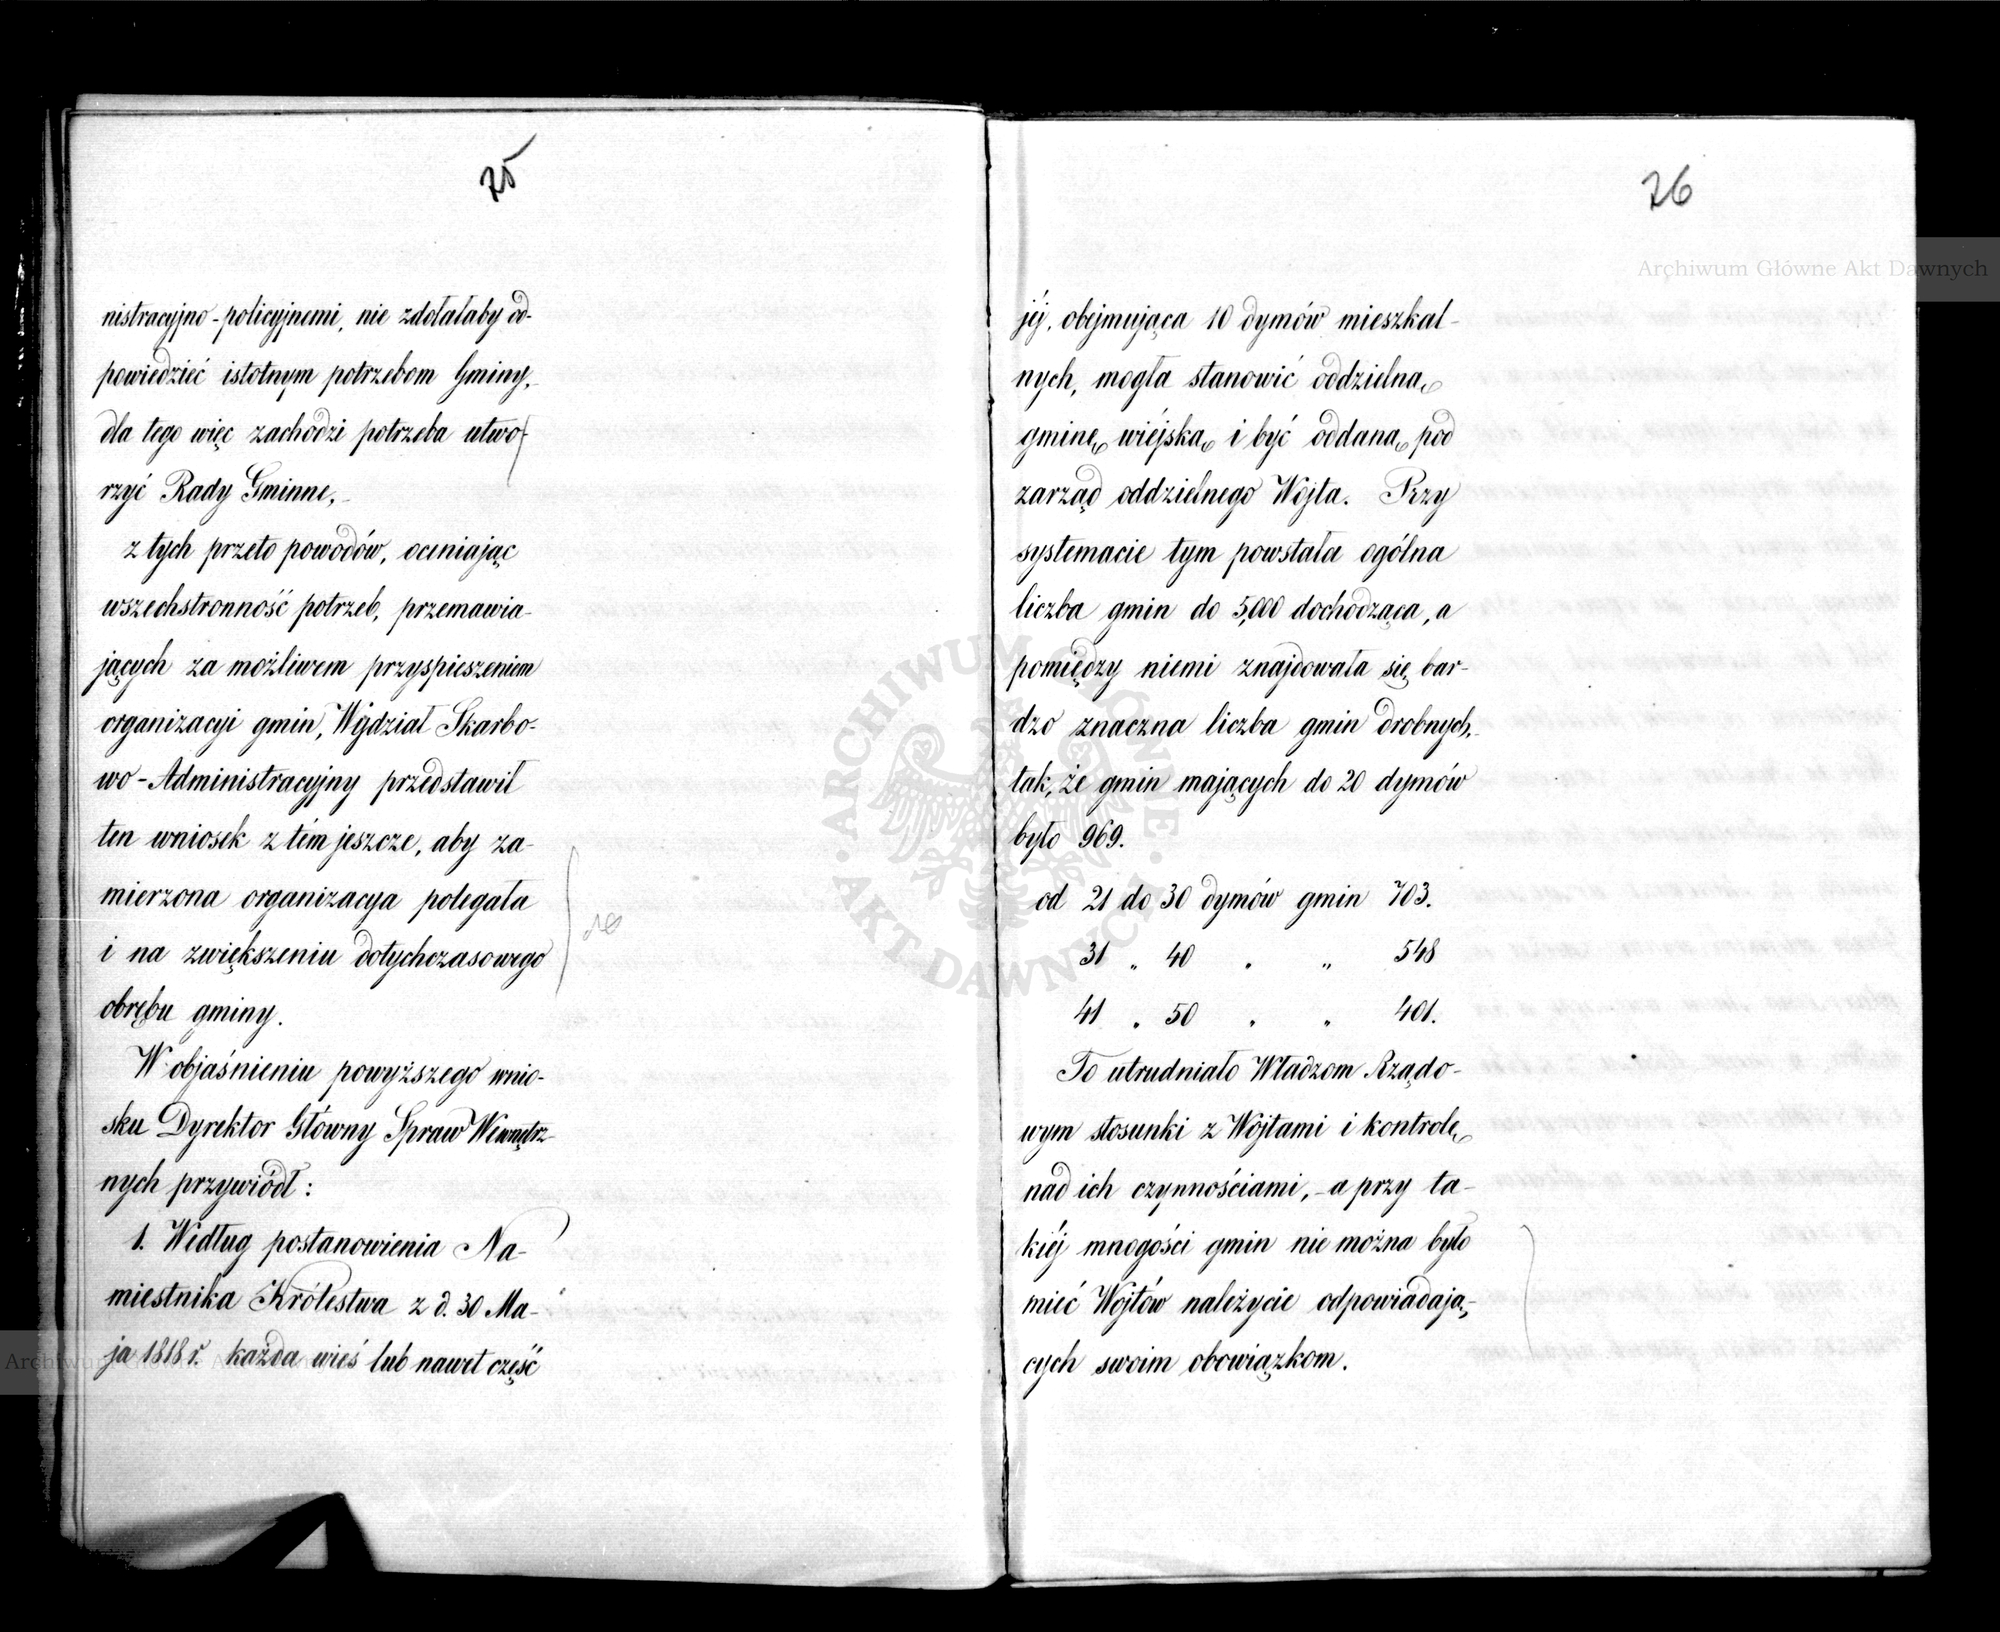 75
nistracyjno-policyjnemi, nie zdołałaby od-
powiedzieć istotnym potrzebom Gminy,
dla tego więc zachodzi potrzeba utwo-
rzyć Rady Gminne.
z tych przeto powodów, oceniając
wszechstronność potrzeb, przemawia-
jących za możliwem przyspieszeniem
organizacyi gmin, Wydział Skarbo-
wo-Administracyjny przedstawił
ten wniosek z tém jeszcze, aby za-
mierzona organizacya polegała
i na zwiększeniu dotychczasowego
obrębu gminy.
W objaśnieniu powyższego wnio-
sku Dyrektor Główny Spraw Wewnętrz-
nych przywiódł:
1. Według postanowienia Na-
miestnika Królestwa z d. 30 Ma-
ja 1818 r. każda wieś lub nawet część
76
jéj, obejmująca 10 dymów mieszkal-
nych, mogła stanowić oddzielną
gminę wiejską i być oddaną pod
zarząd oddzielnego Wójta. Przy
systemacie tym powstała ogólna
liczba gmin do 5,000 dochodząca, a
pomiędzy niemi znajdowała się bar-
dzo znaczna liczba gmin drobnych,
tak, że gmin mających do 20 dymów
było 969.
od 21 do 30 dymów gmin 703.
31 „ 40 „ „ 548
41 „ 50 „ „ 401.
To utrudniało Władzom Rządo-
wym stosunki z Wójtami i kontrolę
nad ich czynnościami, a przy ta-
kiéj mnogości gmin nie można było
mieć Wójtów należycie odpowiadają-
cych swoim obowiązkom.
Archiwum Główne Akt Dawnych
ARCHIWUM GŁÓWNE AKT DAWNYCH